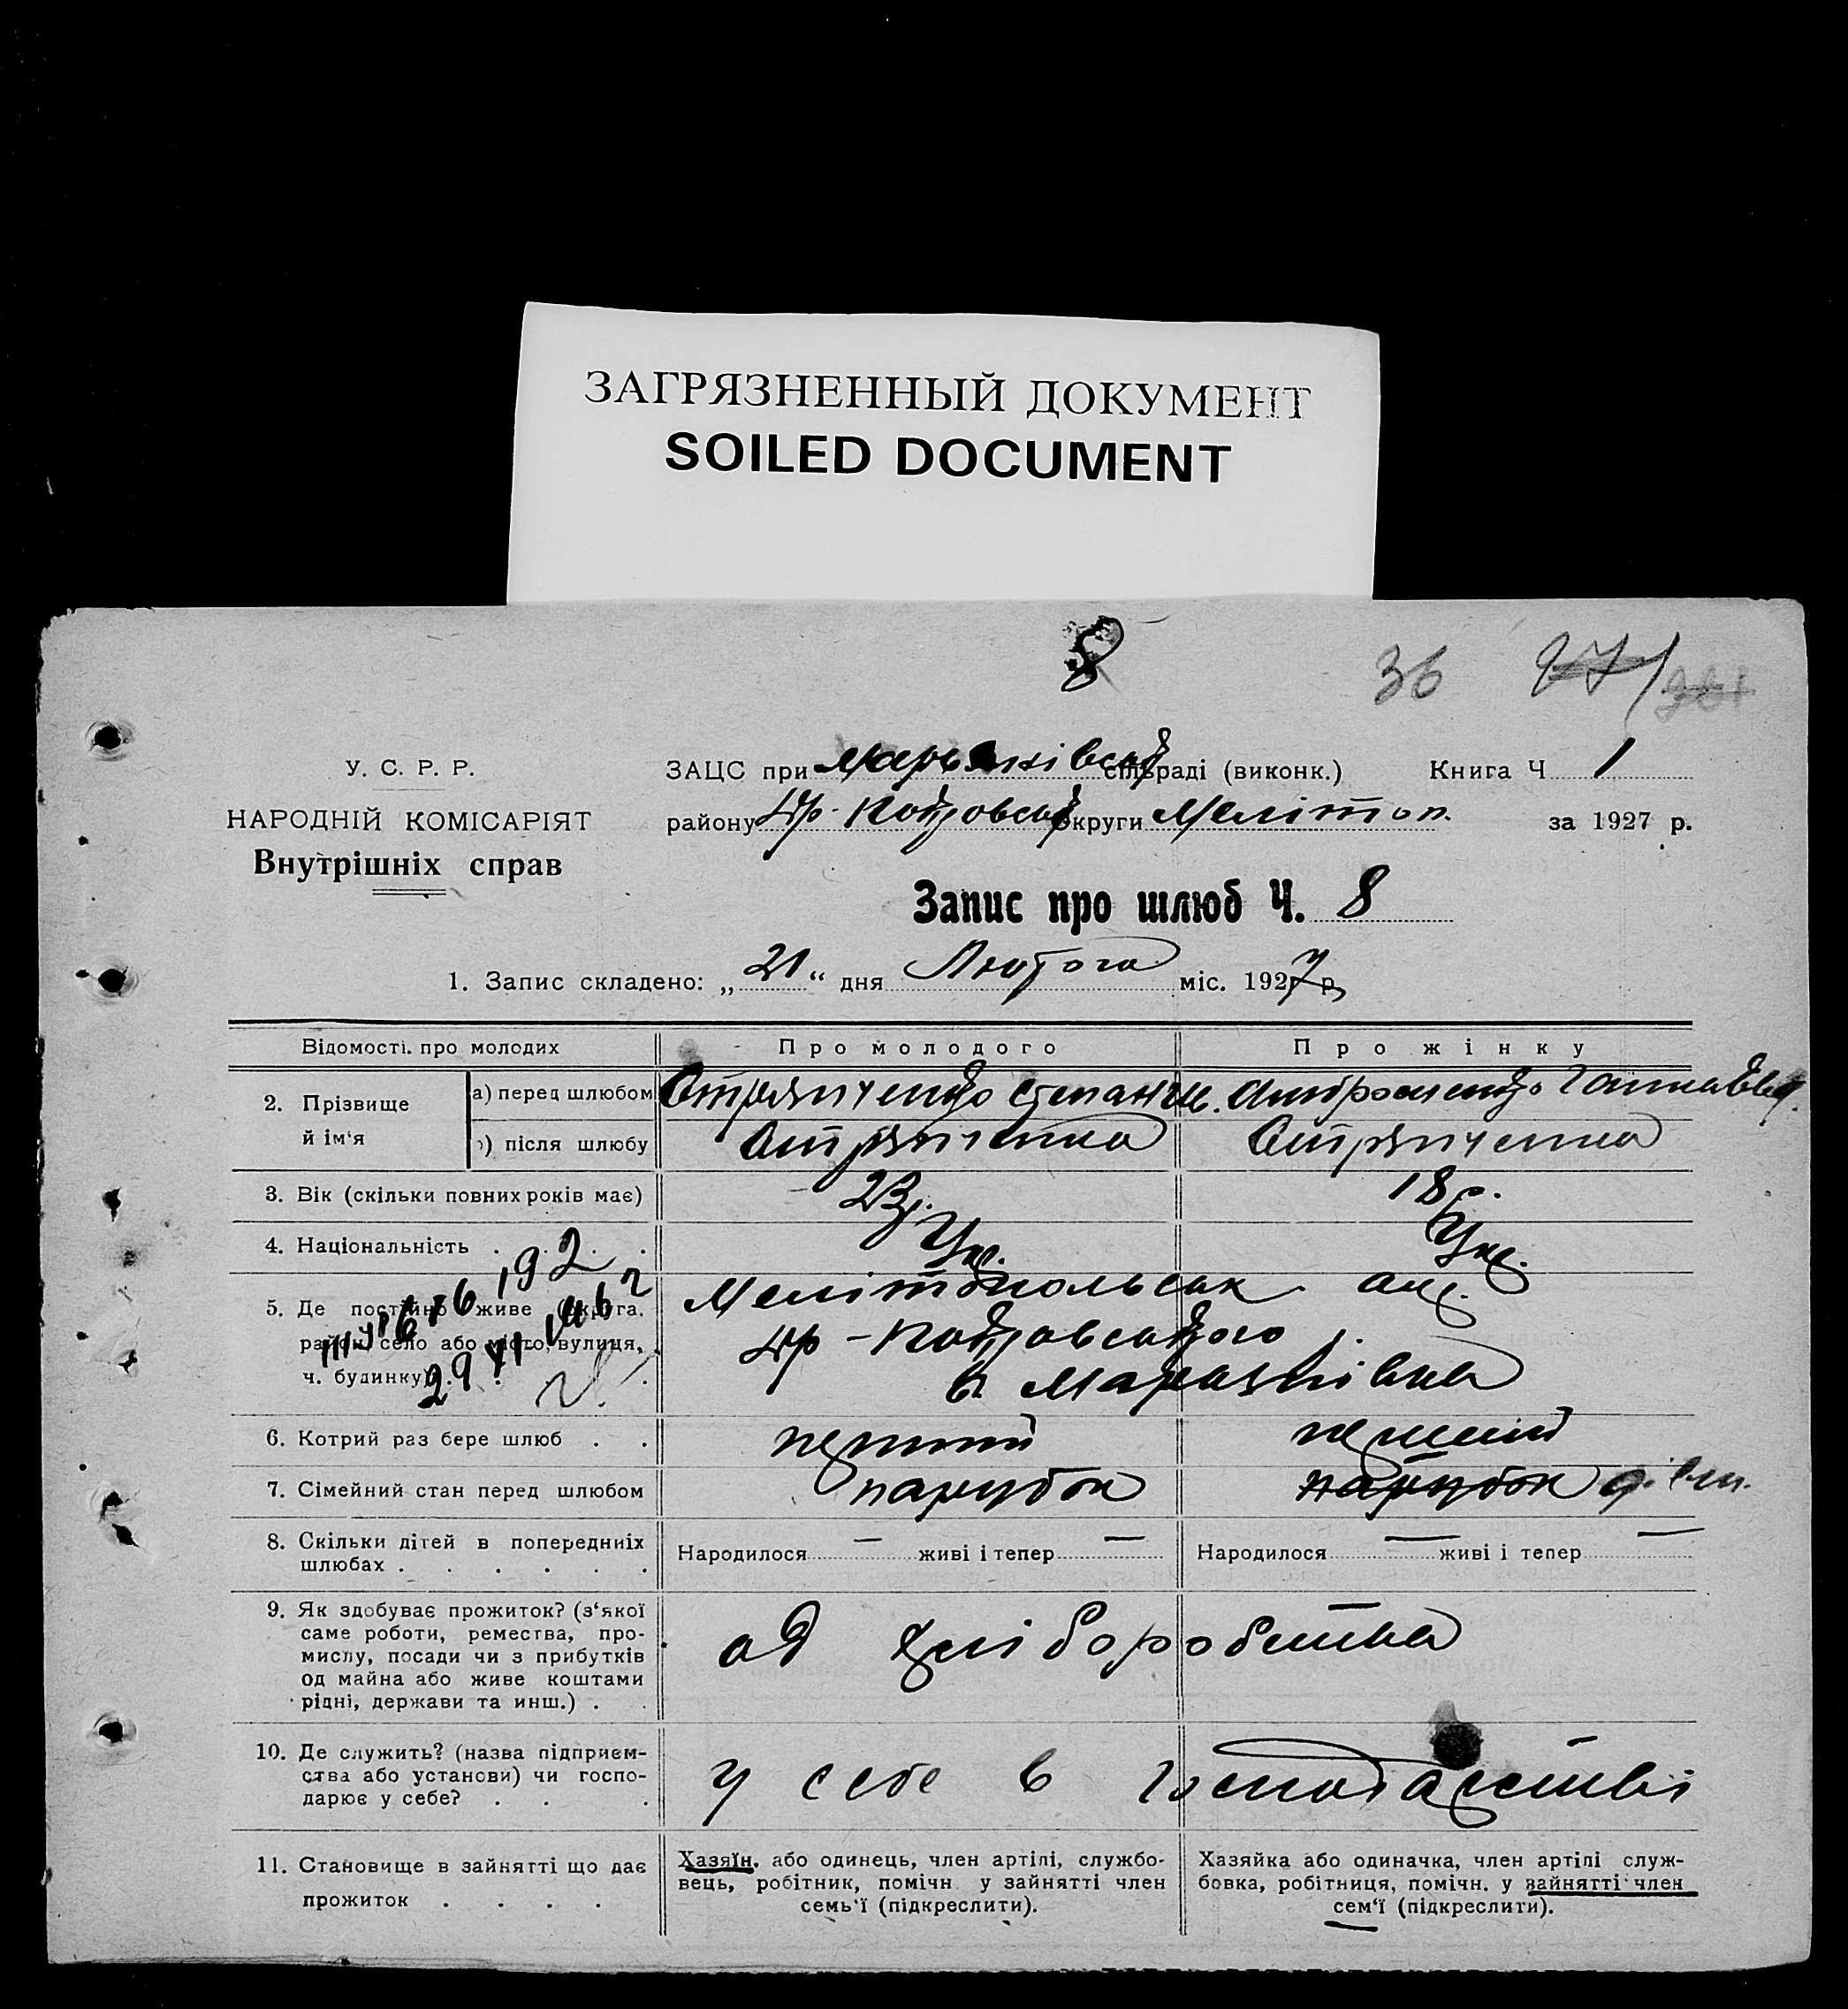 ЗАГРЯЗНЕННЫЙ ДОКУМЕНТ
SOILED DOCUMENT
8
36
У. С. Р. Р.
НАРОДНІЙ КОМІСАРІЯТ
Внутрішніх справ
ЗАЦС при сільраді (виконк.) Книга Ч 1
району округи Мелітоп. за 1927 р.
Запис про шлюб Ч. 8
1. Запис складено: „21“ дня Лютого міс. 1927 р.
Відомості про молодих Про молодого Про жінку
2. Прізвище й ім‘я
а) перед шлюбом Степан
) після шлюбу
3. Вік (скільки повних років має) 23р. 18р.
4. Національність . . . . Укр. Укр.
5. Де постійно живе (округа. Мелітопольськ. окр.
район, село або місто, вулиця,
ч. будинку) . . .
6. Котрий раз бере шлюб . . перший перший
7. Сімейний стан перед шлюбом парубок парубок дівч.
8. Скільки дітей в попередніх Народилося — живі і тепер — Народилося — живі і тепер —
шлюбах . . . . . .
9. Як здобуває прожиток? (з‘якої
саме роботи, ремества, про-
мислу, посади чи з прибутків од хліборобства
од майна або живе коштами
рідні, держави та инш.) . .
10. Де служить? (назва підприєм-
ства або установи) чи госпо- у себе в господарстві
дарює у себе? . . .
11. Становище в зайнятті що дає
прожиток . . . .
Хазяїн, або одинець, член артілі, службо-
вець, робітник, помічн у зайнятті член
семь‘ї (підкреслити).
Хазяйка або одиначка, член артілі служ-
бовка, робітниця, помічн. у зайнятті член
сем‘ї (підкреслити).